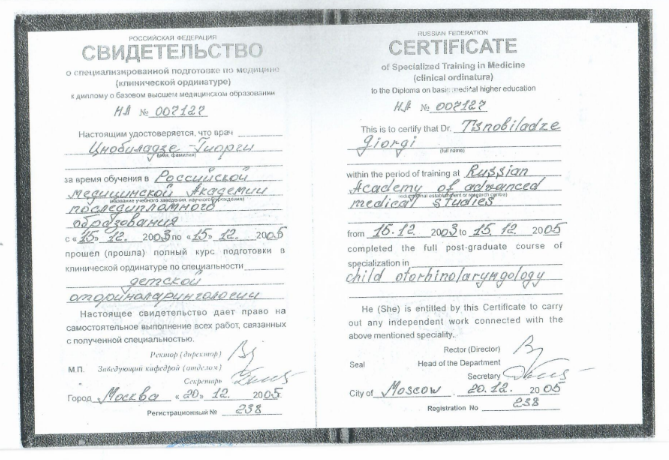 РОССИЙСКАЯ ФЕДЕРАЦИЯ
СВИДЕТЕЛЬСТВО
о специализированной подготовке по медицине
(клинической ординатуре)
к диплому о базовом высшем медицинском образовании
НА № 007127
Настоящим удостоверяется, что врач
Цнобиладзе Гиорги
за время обучения в Российской
медицинской Академии
последипломного
образования
с «15» 12. 2003 по «15» 12. 2005
прошел (прошла) полный курс подготовки в
клинической ординатуре по специальности
детской
оториноларингологии
Настоящее свидетельство дает право на
самостоятельное выполнение всех работ, связанных
с полученной специальностью.
Ректор (директор)
М.П. Заведующий кафедрой (отделом)
Секретарь
Город Москва «20» 12. 2005
Регистрационный № 238
RUSSIAN FEDERATION
CERTIFICATE
of Specialized Training in Medicine
(clinical ordinatura)
to the Diploma on base medital higher education
НА № 007127
This is to certify that Dr. Tsnobiladze
Giorgi
(full name)
within the period of training at Russian
Academy of advanced
medical studies
from 15.12. 2003 to 15.12. 2005
completed the full post-graduate course of
specialization in
child otorhinolaryngology
He (She) is entitled by this Certificate to carry
out any independent work connected with the
above mentioned speciality.
Rector (Director)
Seal Head of the Department
Secretary
City of Moscow. 20.12. 2005
Registration No 238